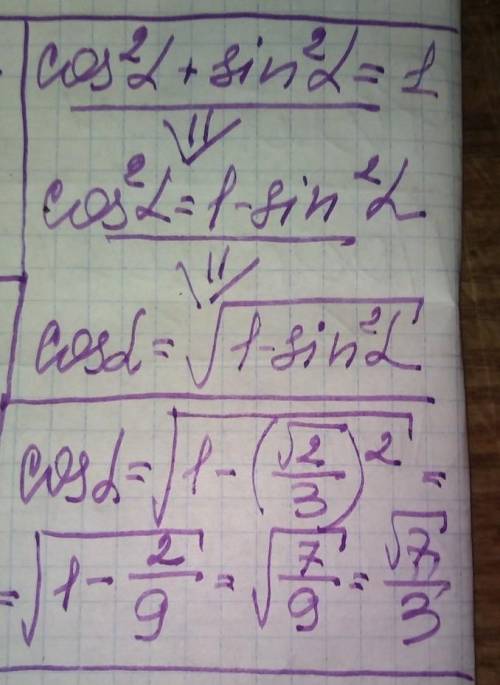 cos²α + sin²α = 1
⇓
cos²α = 1 - sin²α
⇓
cosα = √(1 - sin²α)
cosα = √(1 - (√2/3)²) =
= √(1 - 2/9) = √(7/9) = √7/3